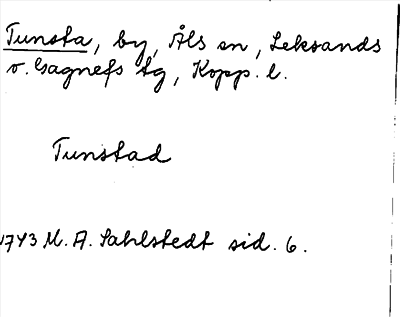 Tunsta, by, Åls sn, Leksands
o. Gagnefs tg, Kopp. l.
Tunstad
1743 M. A. Sahlstedt sid. 6.